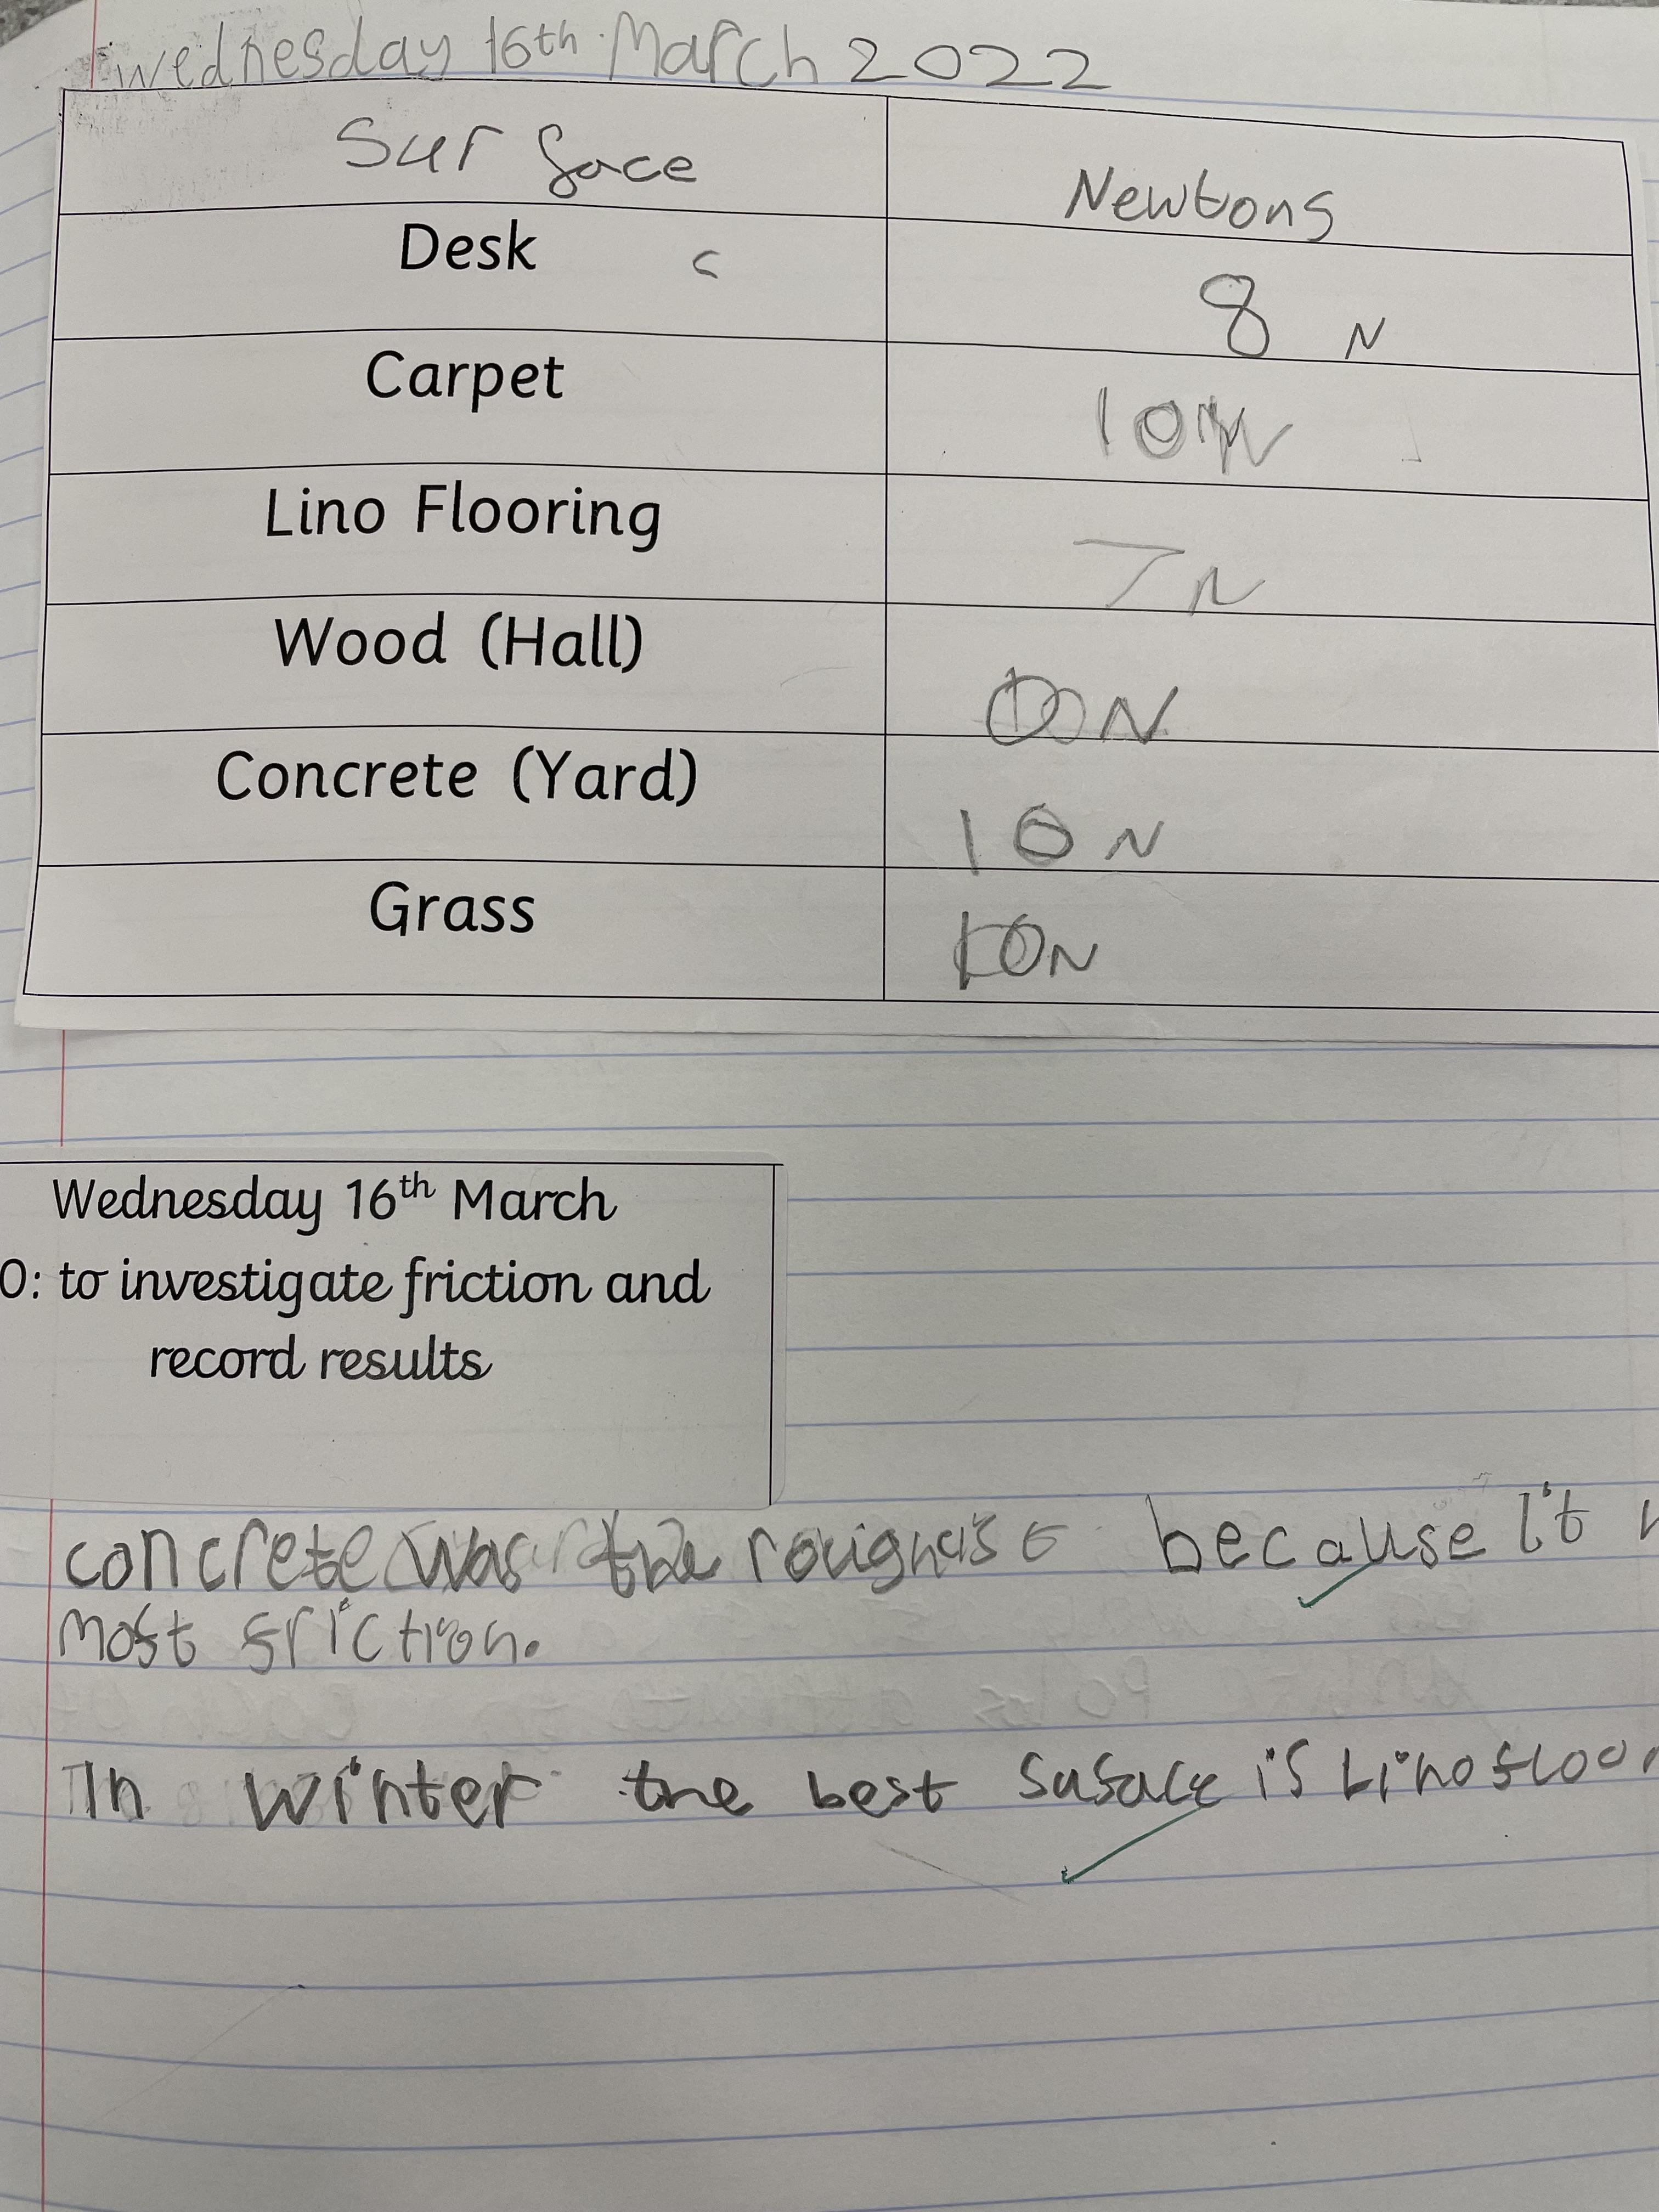 wednesday 16th March 2022
Surface Newtons
Desk 8 N
Carpet 10N
Lino Flooring 7N
Wood (Hall) N
Concrete (Yard) 10 N
Grass 10N
Wednesday 16th March
O: to investigate friction and
record results
concrete was the because it
most friction.
In winter the best susace is Lino floor